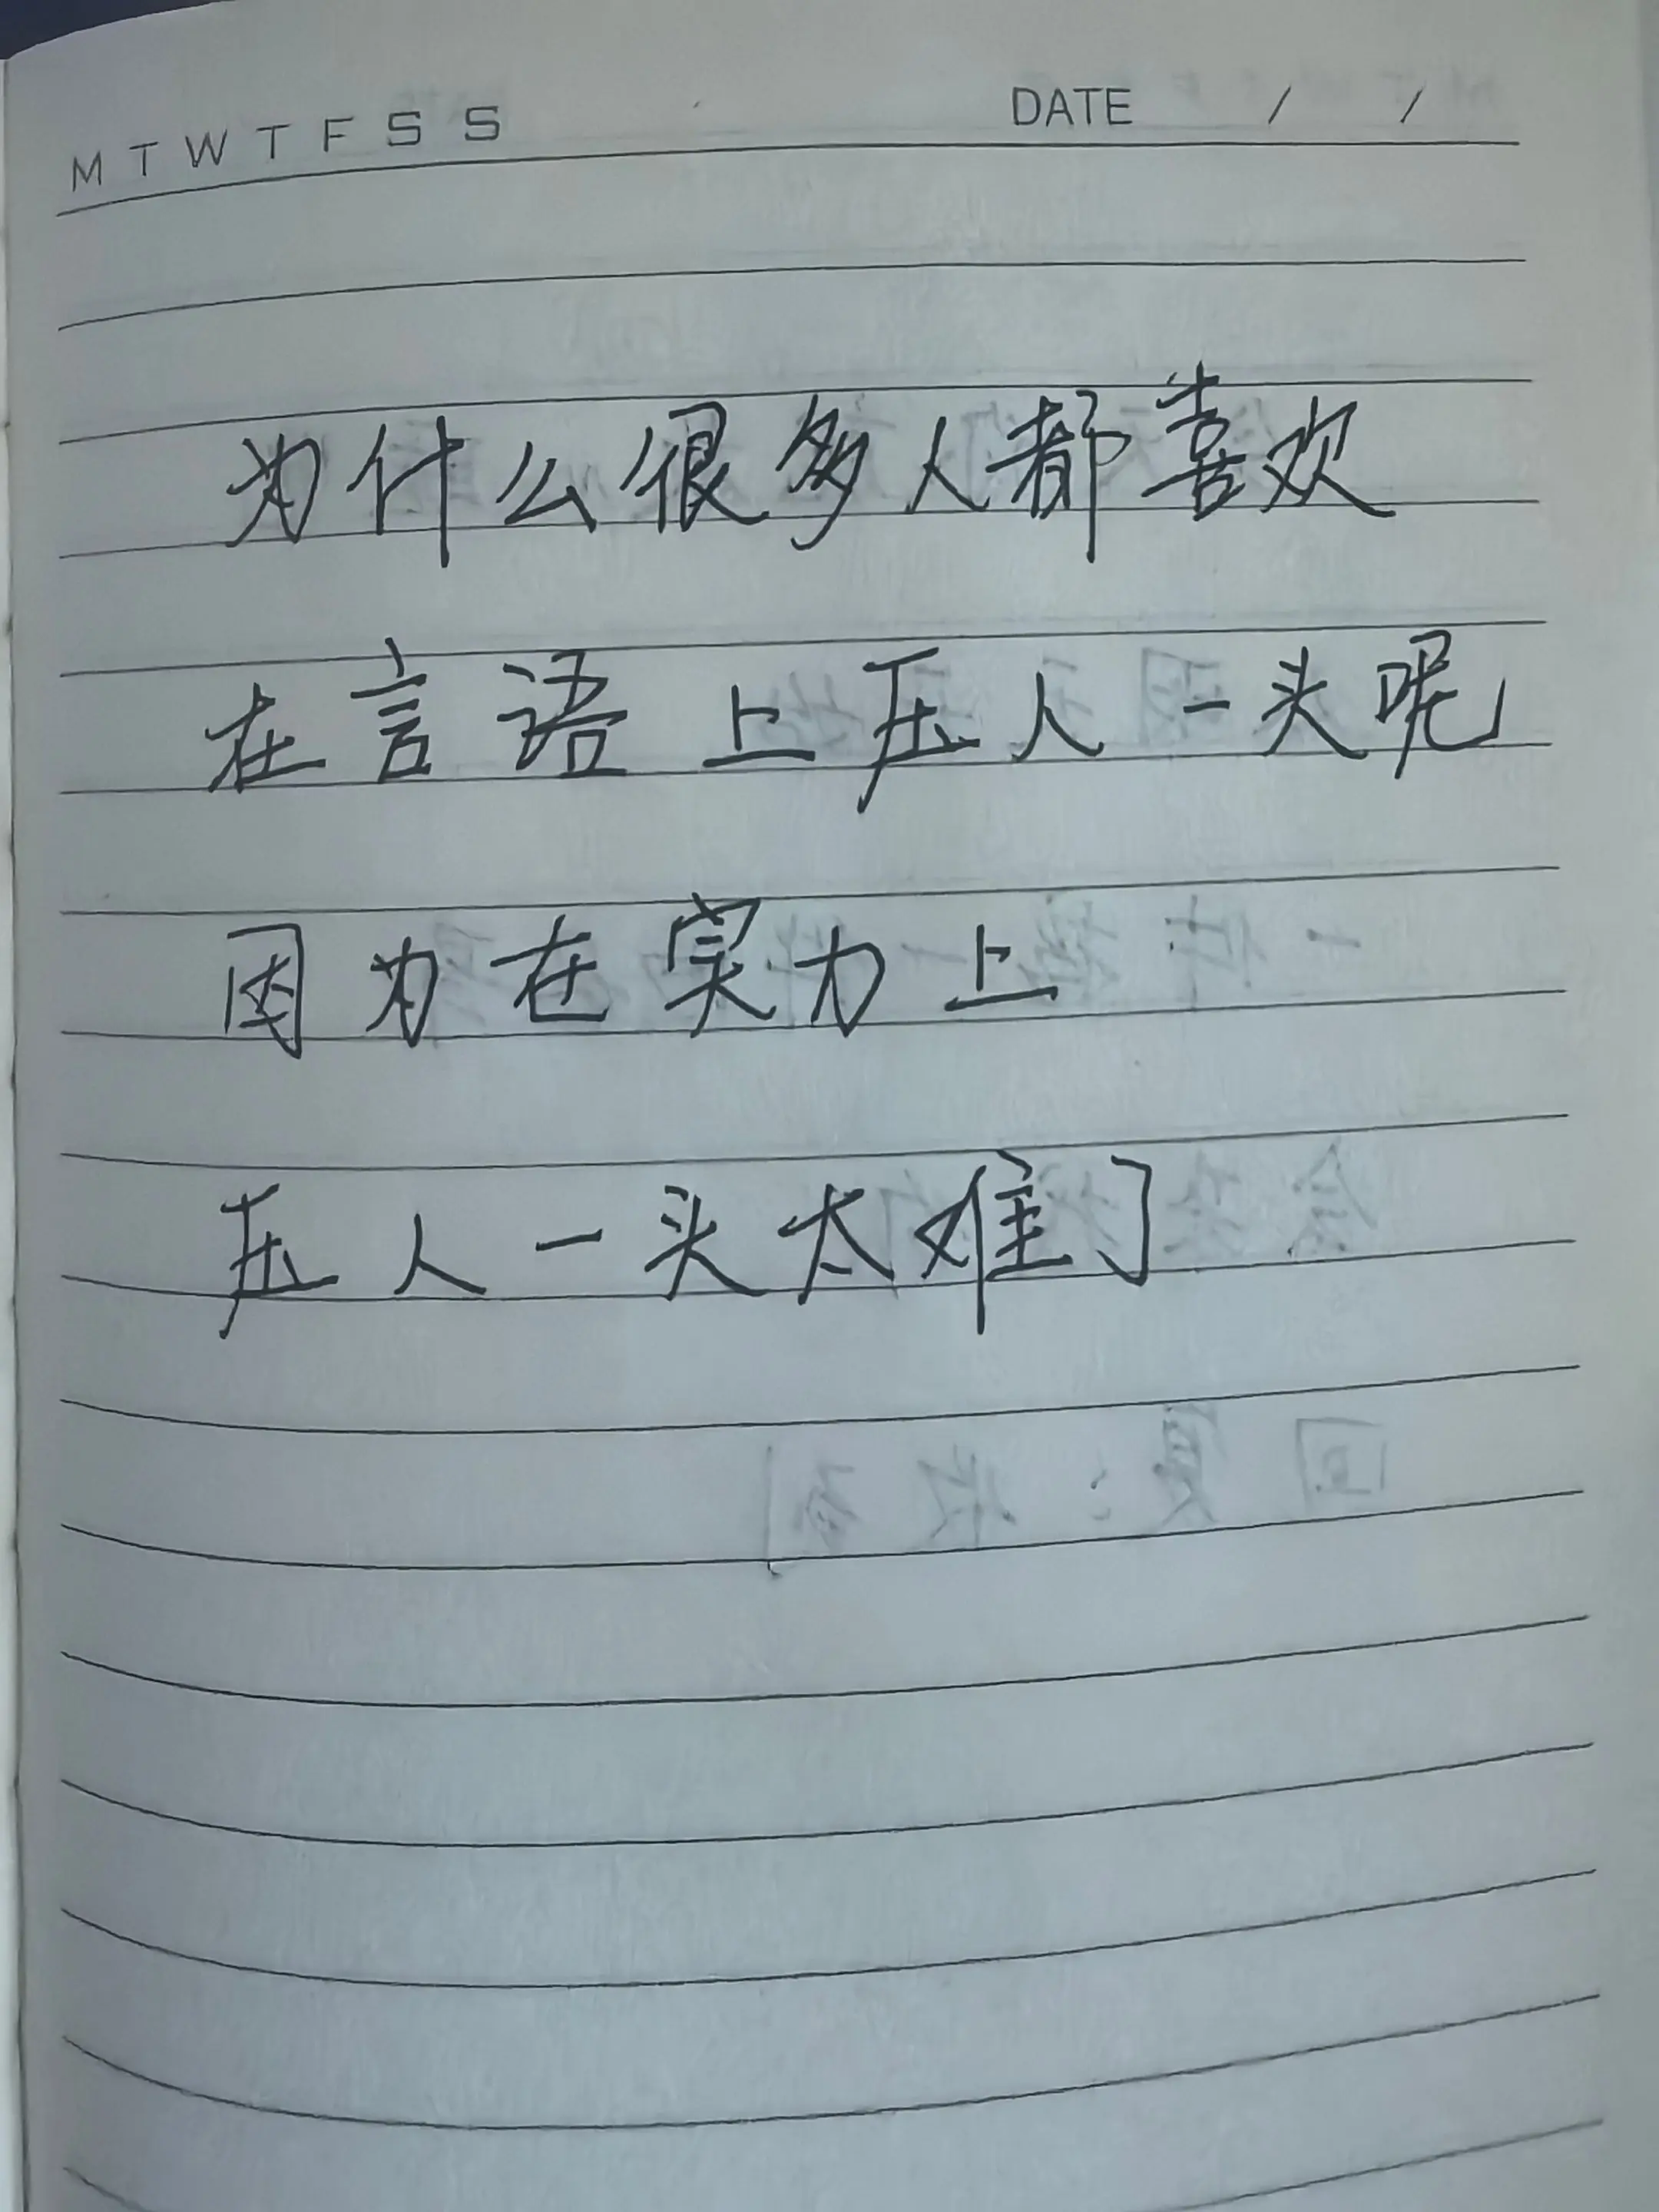 M T W T F S S DATE / /
为什么很多人都喜欢
在言语上压人一头呢
因为在实力上
压人一头太难了